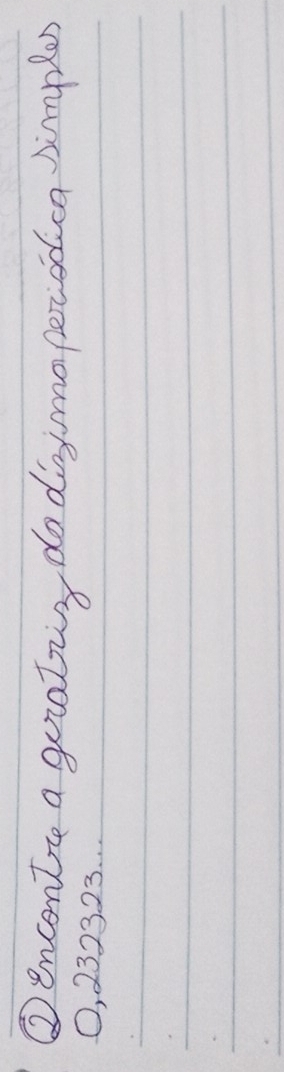 ② Encontre a geratriz da dízima periódica simples
0,232323...